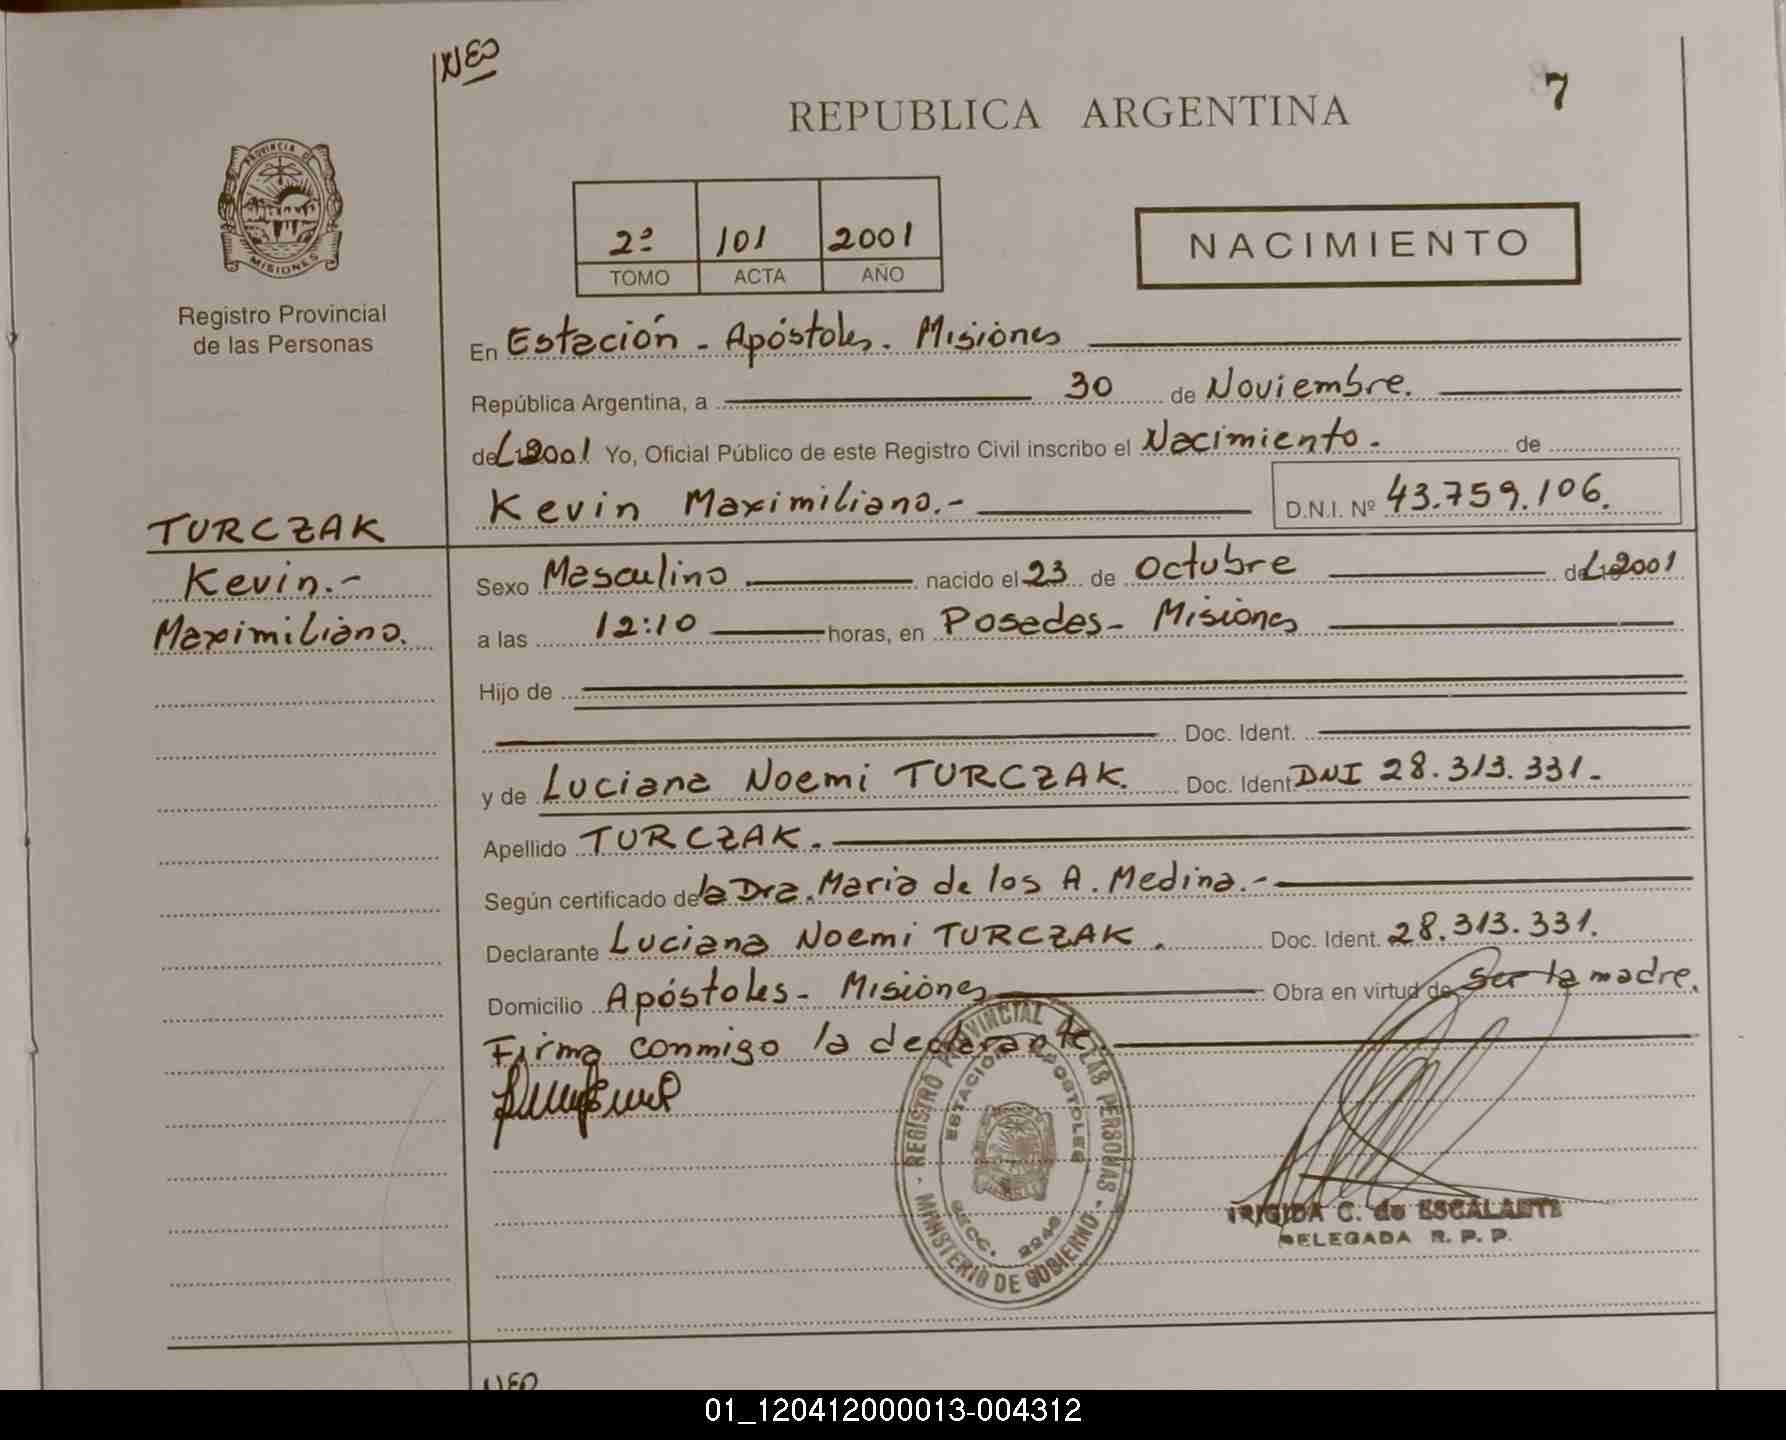 NEO
7
REPUBLICA ARGENTINA
PROVINCIA DE
MISIONES
Registro Provincial
de las Personas
2º 101 2001
TOMO ACTA AÑO
NACIMIENTO
En Estación - Apóstoles - Misiones
República Argentina, a 30 de Noviembre.
del 2001 Yo, Oficial Público de este Registro Civil inscribo el Nacimiento. de
Kevin Maximiliano.- D.N.I. Nº 43.759.106.
TURCZAK
Kevin.-
Maximiliano.
Sexo Masculino nacido el 23 de Octubre del 2001
a las 12:10 horas, en Posadas - Misiones
Hijo de
Doc. Ident.
y de Luciana Noemi TURCZAK. Doc. Ident. DNI 28.313.331.-
Apellido TURCZAK.
Según certificado de la Dra. Maria de los A. Medina.-
Declarante Luciana Noemi TURCZAK. Doc. Ident. 28.313.331.
Domicilio Apóstoles - Misiones Obra en virtud de ser la madre.
Firma conmigo la declarante.
REGISTRO PROVINCIAL DE LAS PERSONAS - MINISTERIO DE GOBIERNO -
ESTACION APOSTOLES
SECC.
C. de ESCALANTE
DELEGADA R. P. P.
NEO
01_120412000013-004312